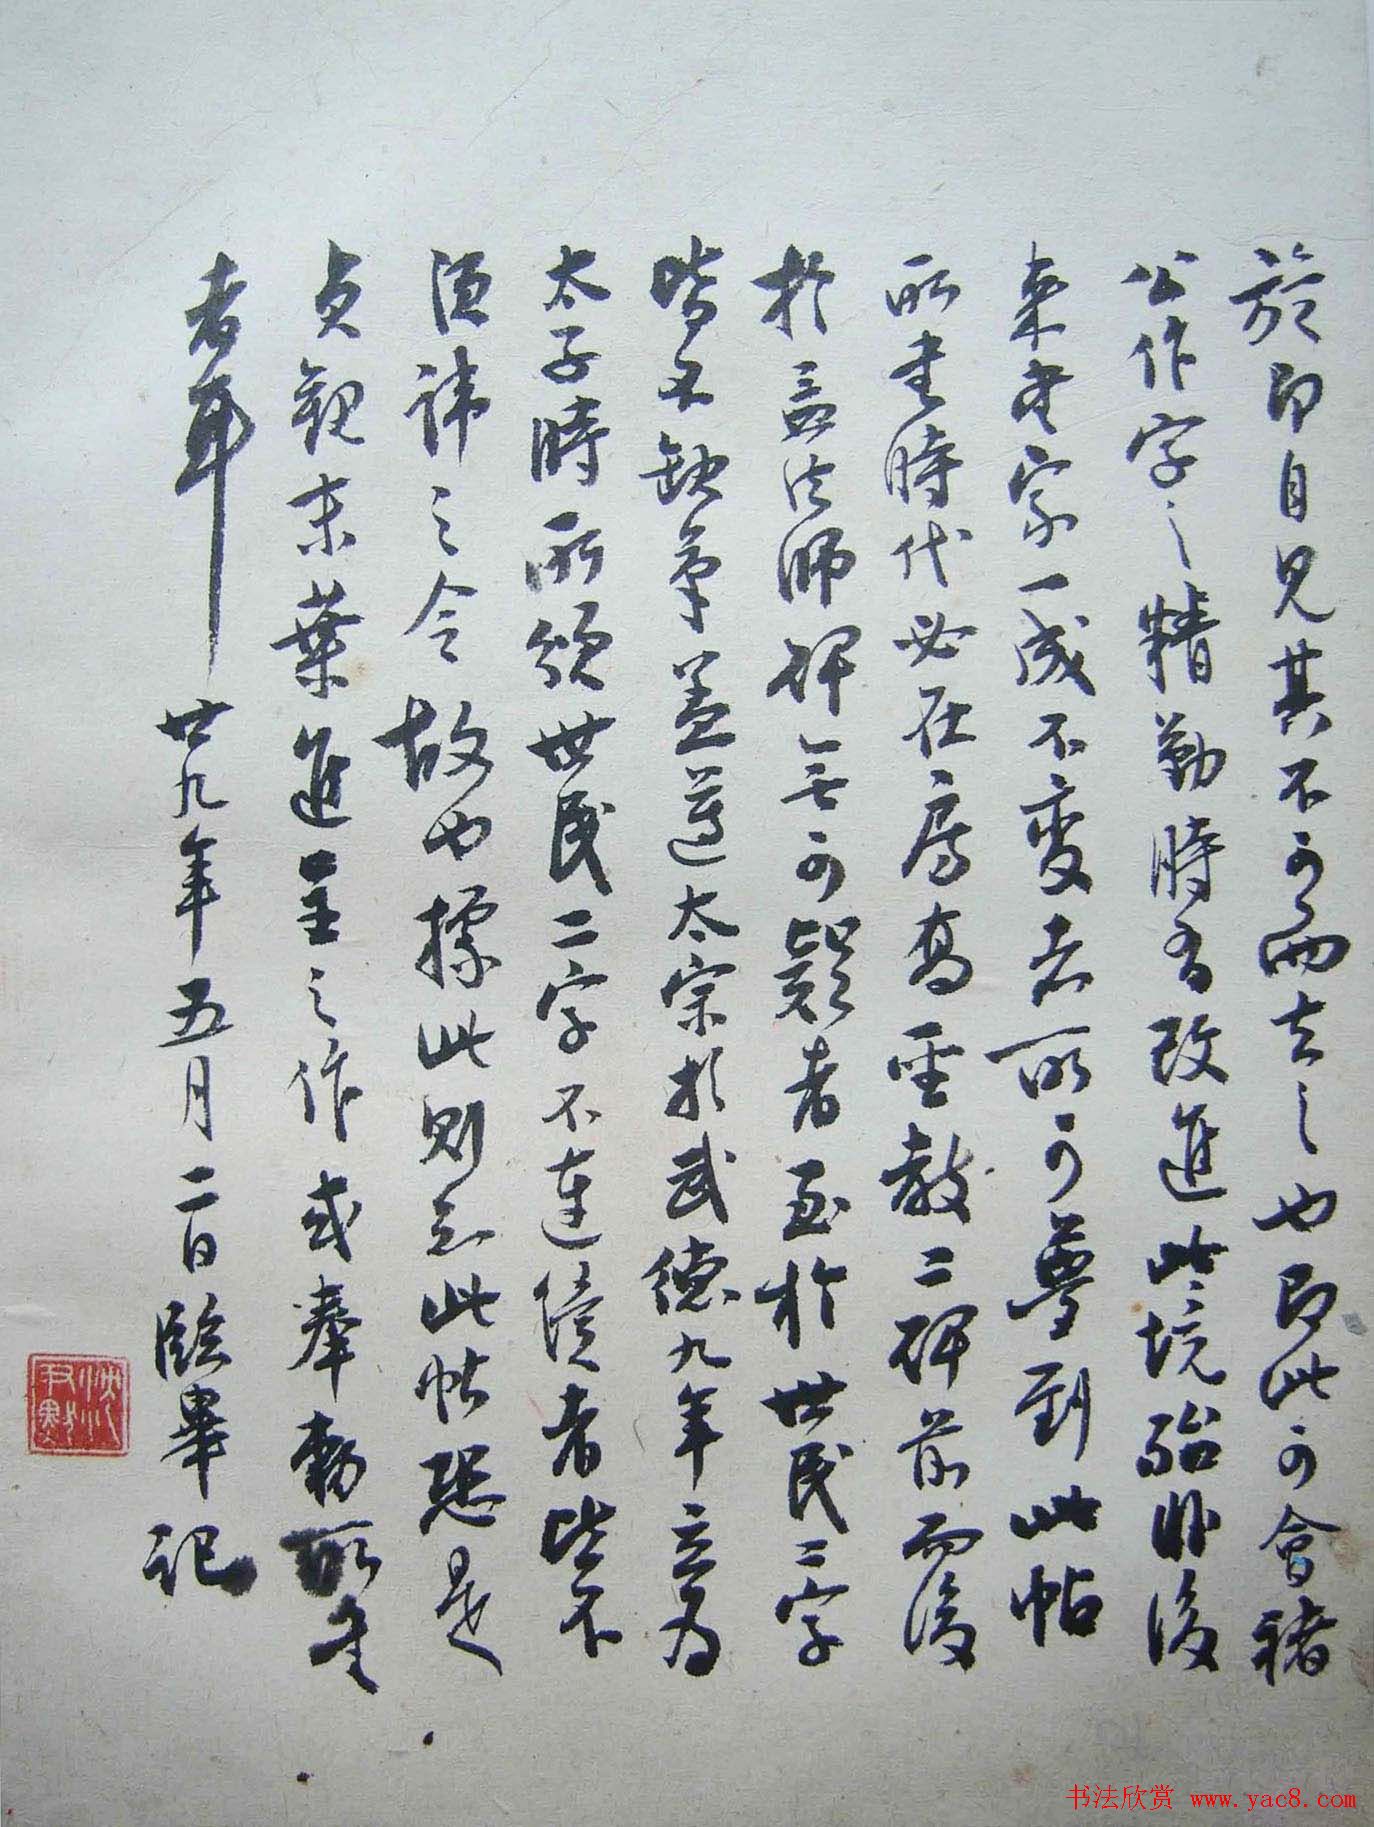 於印自見其不可而去之也即此可會褚
公作字之精勤時有改進此境殆非後
來書家一成不變者所可夢到此帖
所書時代必在房高聖教二碑前而後
於孟法師碑無可疑者至於世民二字
皆不缺筆蓋遵太宗於武德九年立為
太子時所頒世民二字不連續者皆不
須諱之令故也據此則知此帖恐是
貞觀末葉進呈之作或奉勅所書
者耳
廿九年五月二日臨畢記
沈尹默
书法欣赏 www.yac8.com